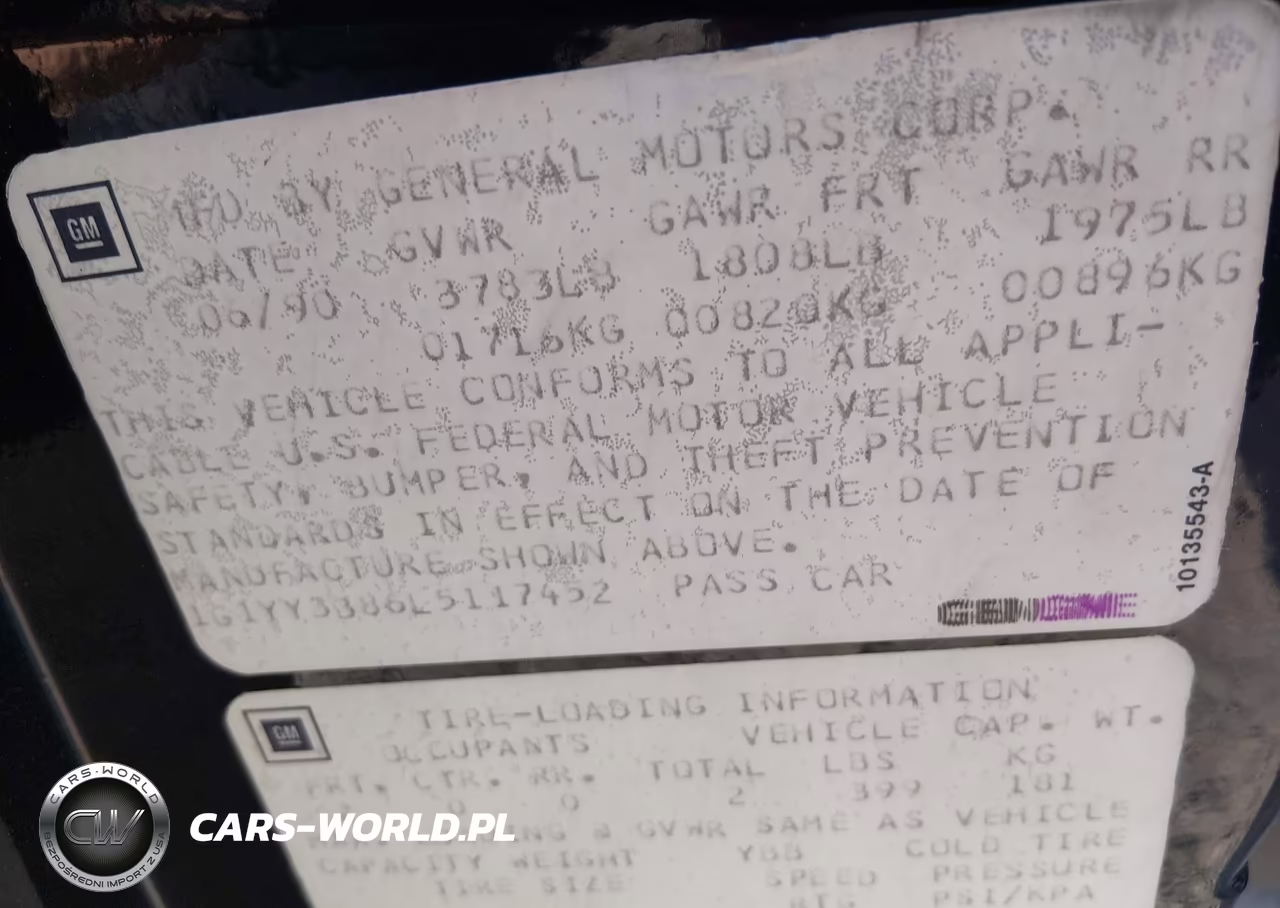 GM
MFD BY GENERAL MOTORS CORP.
DATE GVWR GAWR FRT GAWR RR
06/90 3783LB 1808LB 1975LB
01716KG 00820KG 00896KG
THIS VEHICLE CONFORMS TO ALL APPLI-
CABLE U.S. FEDERAL MOTOR VEHICLE
SAFETY, BUMPER, AND THEFT PREVENTION
STANDARDS IN EFFECT ON THE DATE OF
MANUFACTURE SHOWN ABOVE.
1G1YY3386L5117452 PASS CAR
10135543-A
GM
TIRE-LOADING INFORMATION
OCCUPANTS VEHICLE CAP. WT.
FRT. CTR. RR. TOTAL LBS KG
0 0 2 399 181
& GVWR SAME AS VEHICLE
CAPACITY WEIGHT COLD TIRE
TIRE SIZE SPEED PRESSURE
RTG PSI/KPA
CARS-WORLD
CW
BEZPOŚREDNI IMPORT Z USA
CARS-WORLD.PL